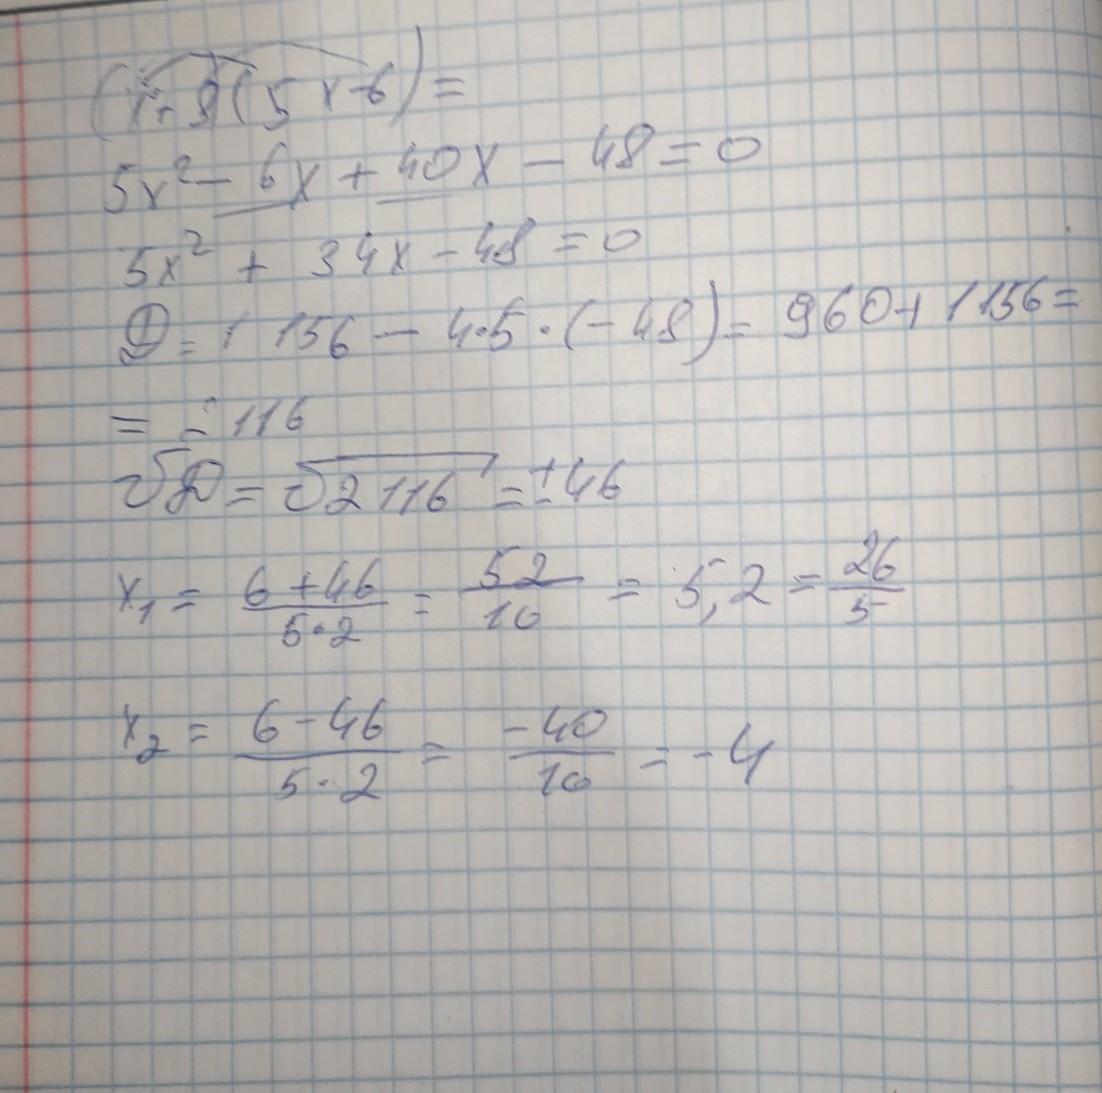 (x+8)(5x-6)=
5x²-6x+40x-48=0
5x²+34x-48=0
D=1156-4·5·(-48)=960+1156=
=2116
√D=√2116=±46
x₁=\frac{6+46}{5·2}=\frac{52}{10}=5,2=\frac{26}{5}
x₂=\frac{6-46}{5·2}=\frac{-40}{10}=-4